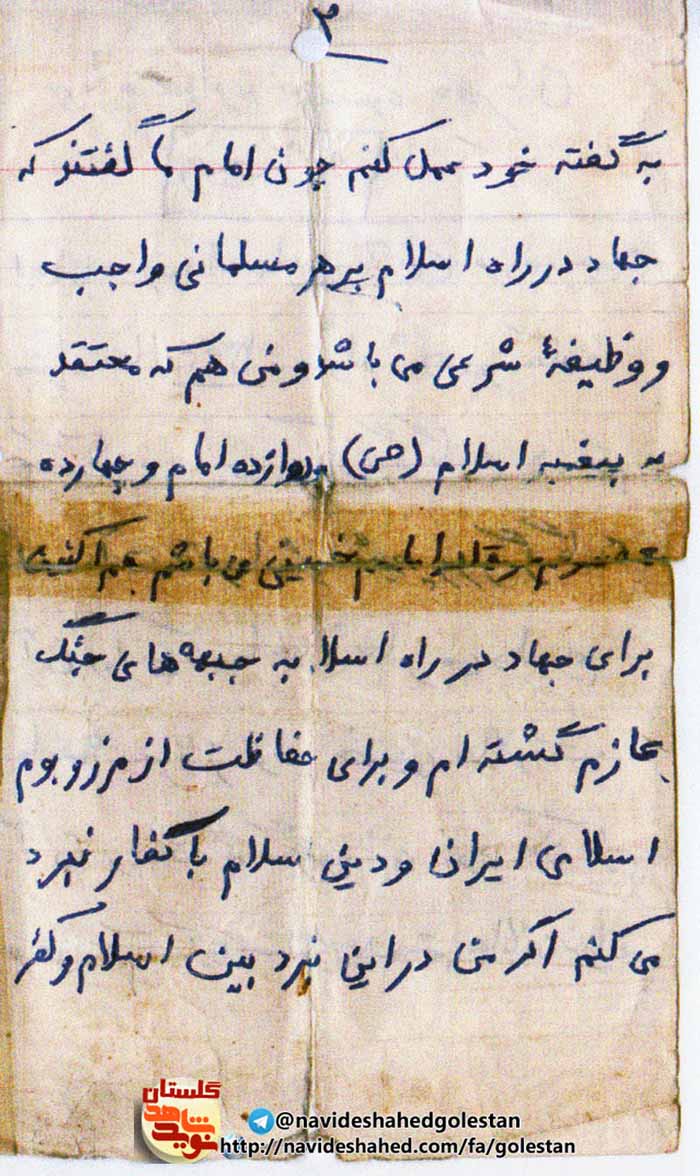 ۳
به گفته خود عمل کنم چون امام ما گفتند که
جهاد در راه اسلام بر هر مسلمانی واجب
و وظیفهٔ شرعی می باشد و من هم که معتقد
به پیغمبر اسلام (ص) دوازده امام و چهارده
معصوم و امام خمینی می باشم هم اکنون
برای جهاد در راه اسلا به جبهه های جنگ
عازم گشته ام و برای حفاظت از مرز و بوم
اسلامی ایران و دین اسلام با کفار نبرد
می کنم اگر من در این نبرد بین اسلام و کفر
گلستان
نوید شاهد
@navideshahedgolestan
http://navideshahed.com/fa/golestan